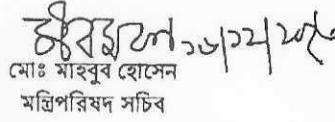 ১৬/১২/২০২৩
মোঃ মাহবুব হোসেন
মন্ত্রিপরিষদ সচিব